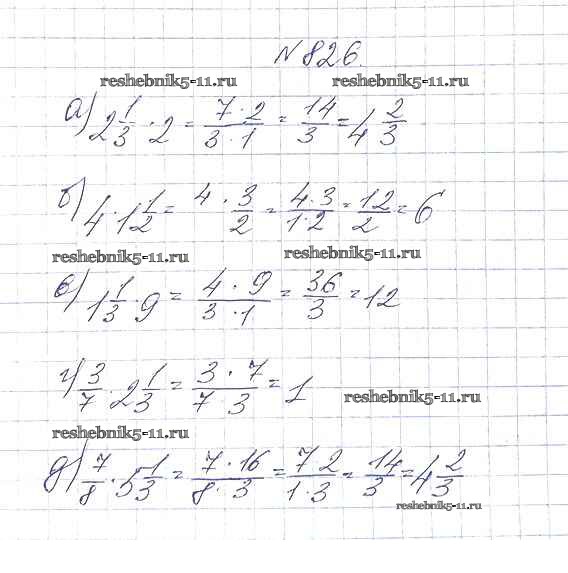 №826.
reshebnik5-11.ru reshebnik5-11.ru
а) 2 1/3 · 2 = (7 · 2)/(3 · 1) = 14/3 = 4 2/3
б) 4 · 1 1/2 = 4 · 3/2 = (4 · 3)/(1 · 2) = 12/2 = 6
reshebnik5-11.ru reshebnik5-11.ru
в) 1 1/3 · 9 = (4 · 9)/(3 · 1) = 36/3 = 12
г) 3/7 · 2 1/3 = (3 · 7)/(7 · 3) = 1
reshebnik5-11.ru
reshebnik5-11.ru
д) 7/8 · 5 1/3 = (7 · 16)/(8 · 3) = (7 2)/(1 · 3) = 14/3 = 4 2/3
reshebnik5-11.ru